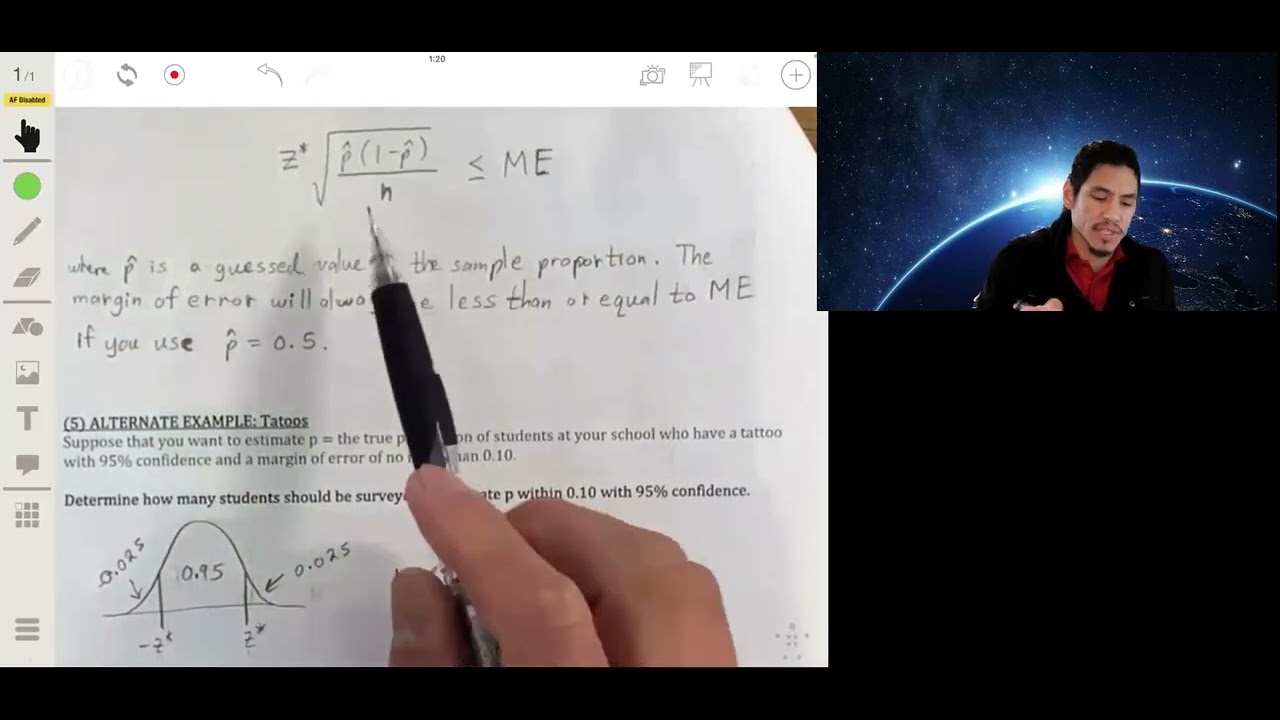 1:20
1/1
AF Disabled
z* √ p̂ (1-p̂) / n ≤ ME
where p̂ is a guessed value the sample proportion. The
margin of error will less than or equal to ME
if you use p̂ = 0.5.
(5) ALTERNATE EXAMPLE: Tatoos
Suppose that you want to estimate p = the true of students at your school who have a tattoo
with 95% confidence and a margin of error of no 0.10.
Determine how many students should be p within 0.10 with 95% confidence.
0.025
0.95
0.025
-z*
z*
T